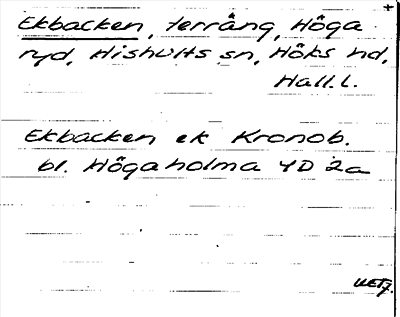 Ekbacken, terräng, Höga
ryd, Hishults sn, Höks hd,
Hall. l.
Ekbacken ek Kronob.
bl. Högaholma 4D 2a